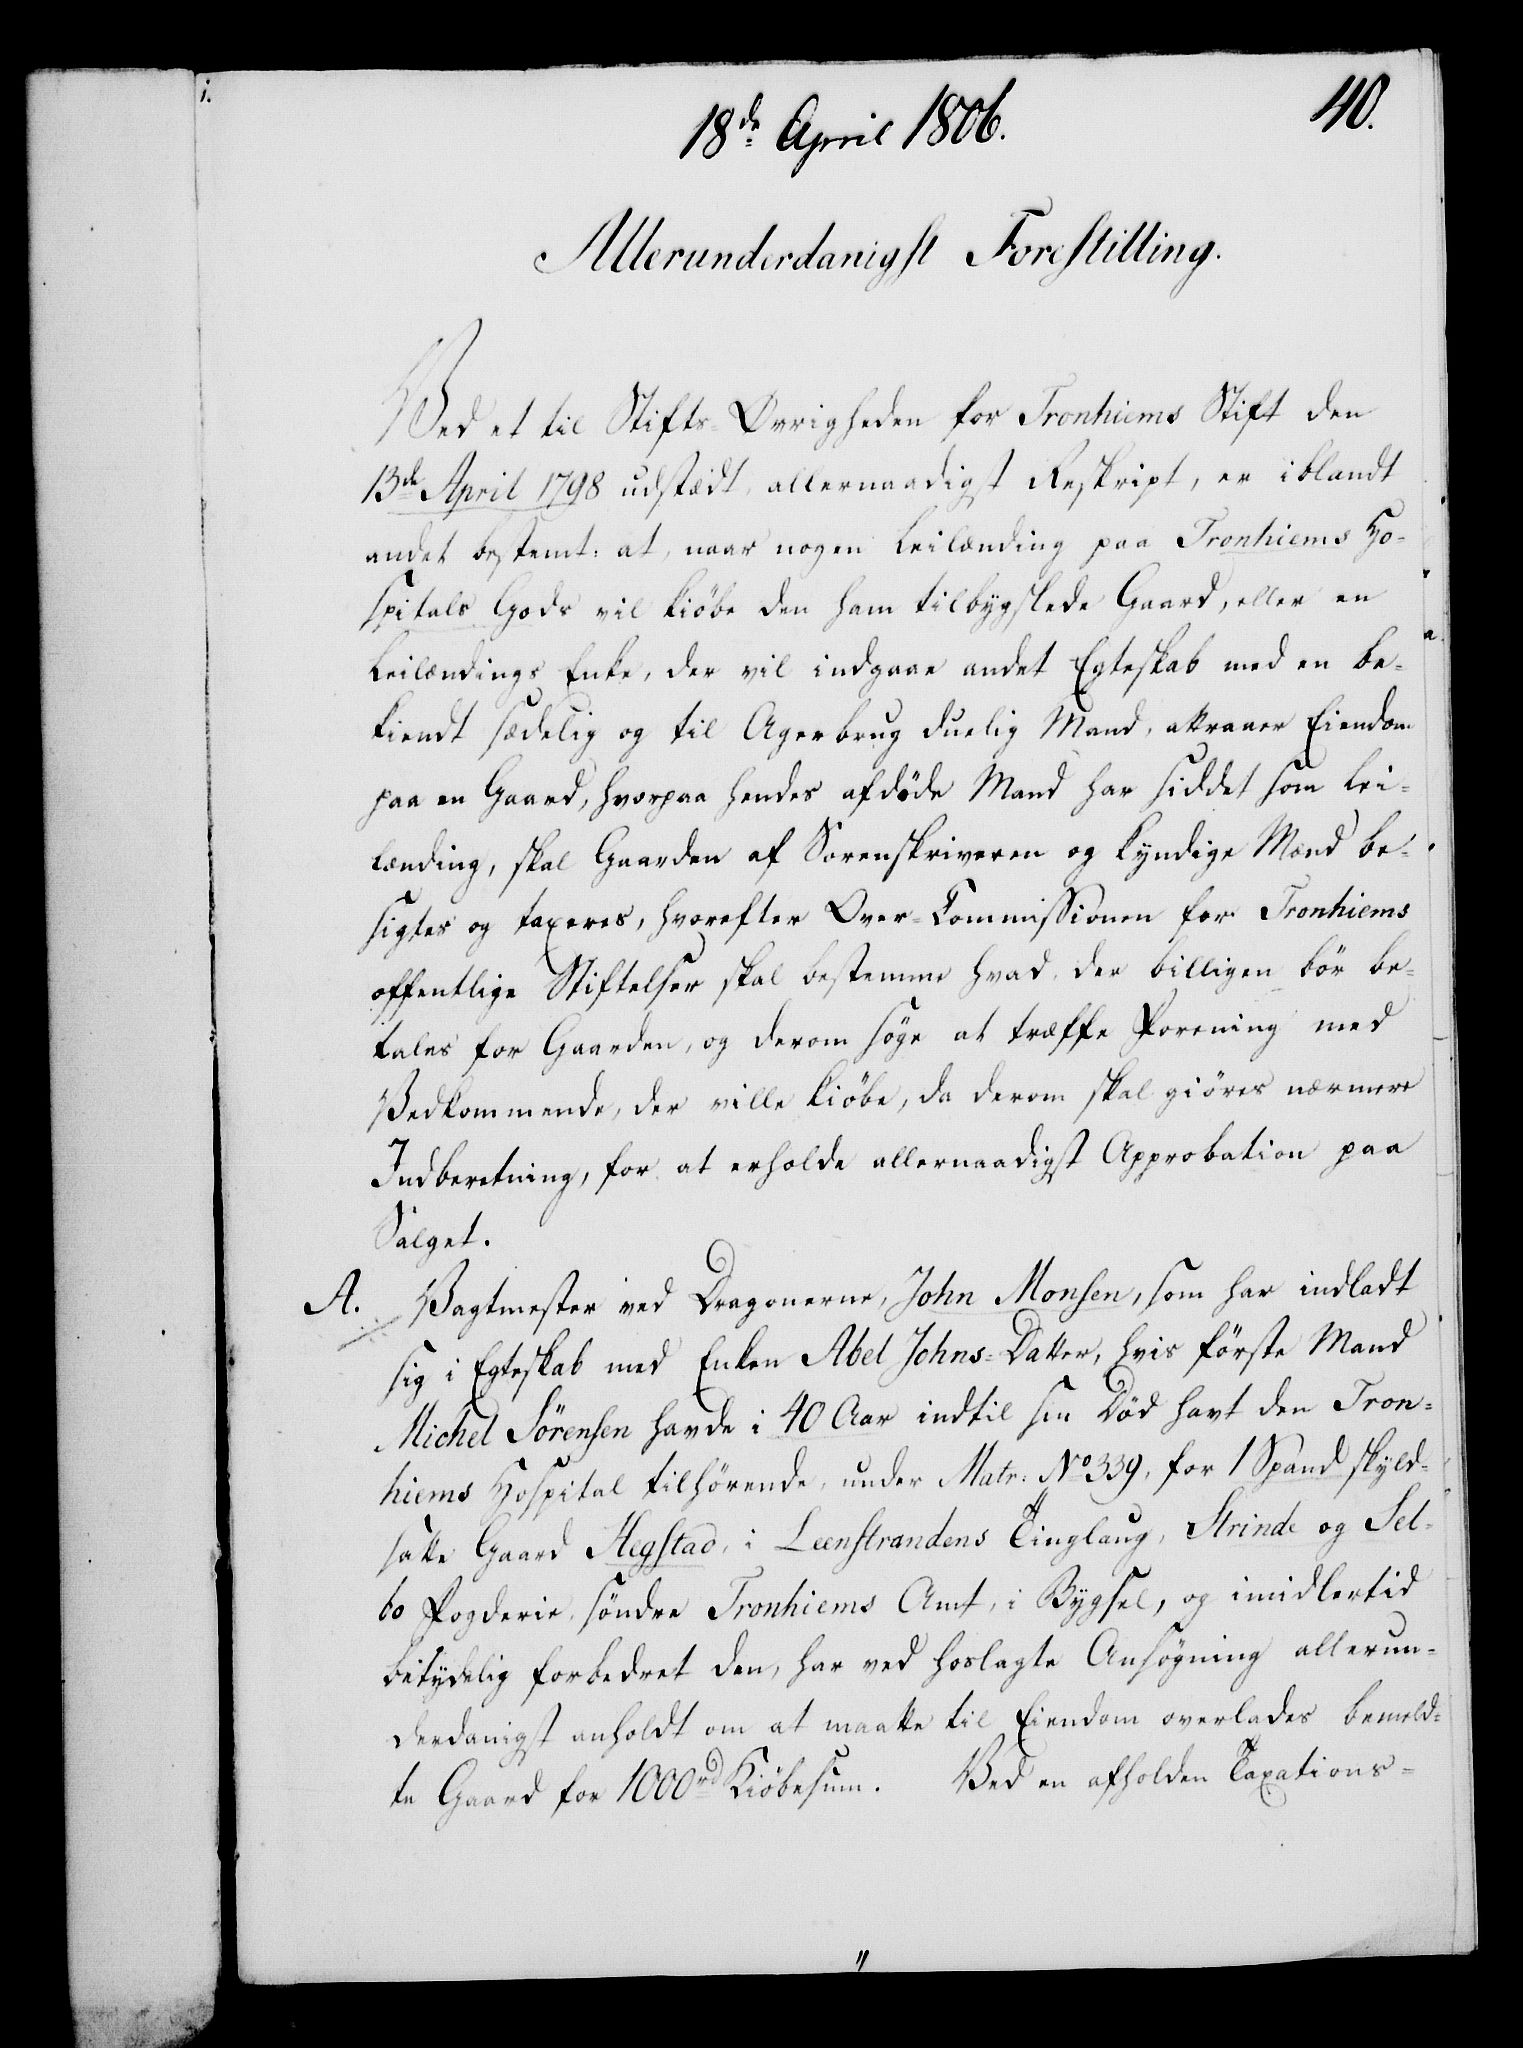 40.
18de April 1806.
Allerunderdanigst Forestilling.
Ved et til Stifts-Øvrigheden for Tronhiems Stift den
13de April 1798 udstædt allernaadigst Reskript, er iblandt
andet bestemt: at, naar nogen Leilænding paa Tronhiems Ho-
spitals Gods vil kiöbe den ham tilbygslede Gaard, eller en
Leilændings Enke, der vil indgaae andet Egteskab med en be-
kiendt sædelig og til Agerbrug duelig Mand, attraaer Eiendom
paa en Gaard, hvorpaa hendes afdöde Mand har siddet som Lei-
lænding, skal Gaarden af Sorenskriveren og kyndige Mænd be-
sigtes og taxeres, hvorefter Over-Commissionen for Tronhiems
offentlige Stiftelser skal bestemme hvad der billigen bör be-
tales for Gaarden, og derom söge at træffe Forening med
Vedkommende, der ville kiöbe, da derom skal giöres nærmere
Indberetning, for at erholde allernaadigst Approbation paa
Salget.
A. Vagtmester ved Dragonerne, John Monsen, som har indladt
sig i Egteskab med Enken Abel Johns-Datter, hvis förste Mand
Michel Sörensen havde i 40 Aar indtil sin Död havt den Tron-
hiems Hospital tilhörende, under Matr: No 339, for 1 Spand skyld-
satte Gaard Hegstad, i Leenstrandens Tinglaug, Strinde og Sel-
bo Fogderie, söndre Tronhiems Amt, i Bygsel, og imidlertid
betydelig forbedret den, har ved hoslagte Ansögning allerun-
derdanigst anholdt om at maatte til Eiendom overlades bemeld-
te Gaard for 1000rd Kiöbesum. Ved en afholden Taxations-